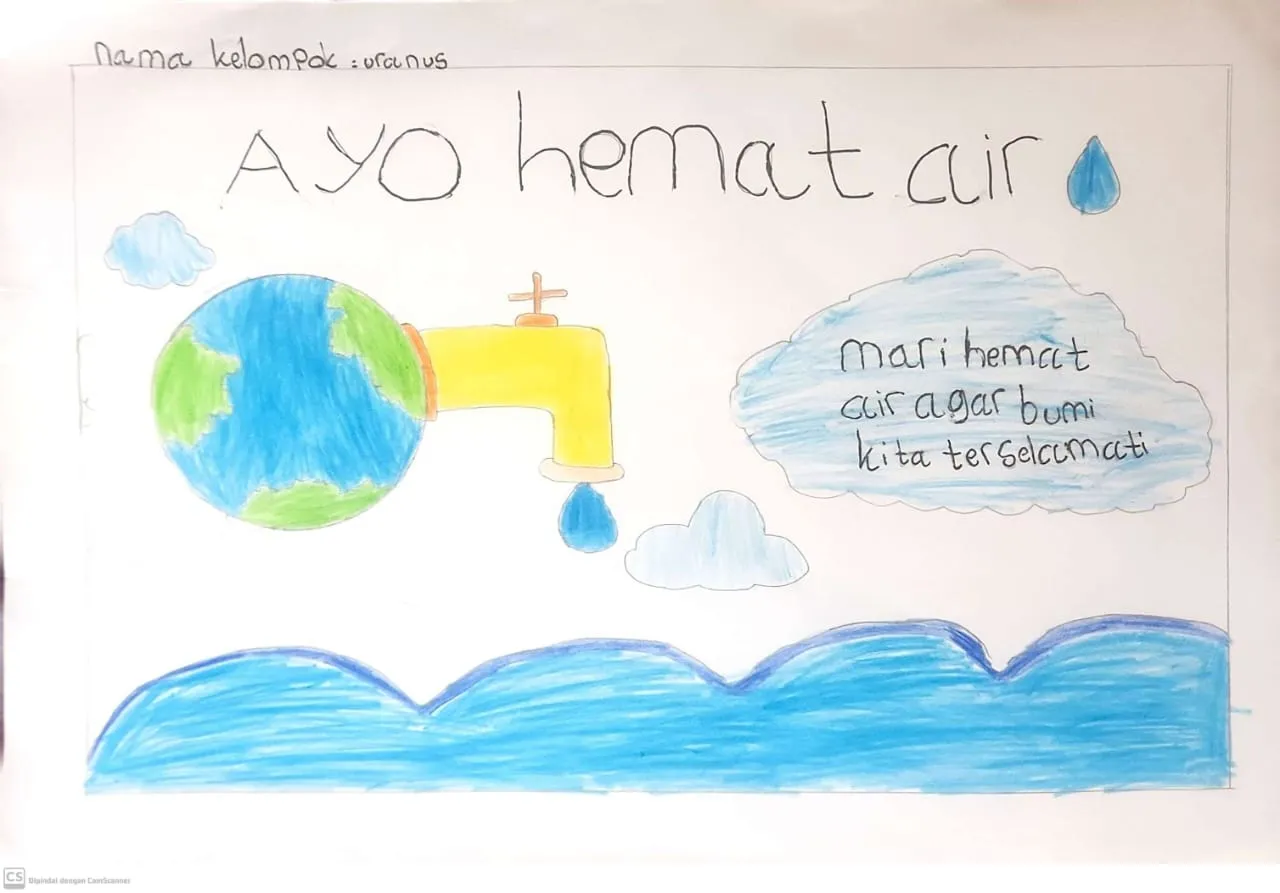 nama kelompok : uranus
AYO hemat air
mari hemat
air agar bumi
kita terselamati
CS Dipindai dengan CamScanner